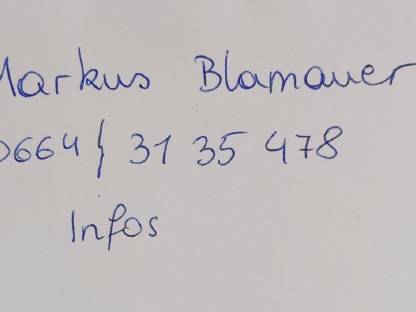 Markus Blamauer
0664/ 31 35 478
Infos